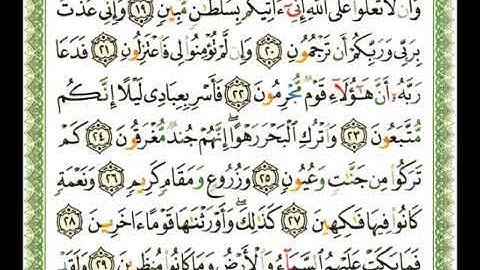 وَأَن لَّا تَعْلُوا۟ عَلَى ٱللَّهِ إِنِّىٓ ءَاتِيكُم بِسُلْطَـٰنٍ مُّبِينٍ ١٩ وَإِنِّى عُذْتُ
بِرَبِّى وَرَبِّكُمْ أَن تَرْجُمُونِ ٢٠ وَإِن لَّمْ تُؤْمِنُوا۟ لِى فَٱعْتَزِلُونِ ٢١ فَدَعَا
رَبَّهُۥٓ أَنَّ هَـٰٓؤُلَآءِ قَوْمٌ مُّجْرِمُونَ ٢٢ فَأَسْرِ بِعِبَادِى لَيْلًا إِنَّكُم
مُّتَّبَعُونَ ٢٣ وَٱتْرُكِ ٱلْبَحْرَ رَهْوًا ۖ إِنَّهُمْ جُندٌ مُّغْرَقُونَ ٢٤ كَمْ
تَرَكُوا۟ مِن جَنَّـٰتٍ وَعُيُونٍ ٢٥ وَزُرُوعٍ وَمَقَامٍ كَرِيمٍ ٢٦ وَنَعْمَةٍ
كَانُوا۟ فِيهَا فَـٰكِهِينَ ٢٧ كَذَٰلِكَ ۖ وَأَوْرَثْنَـٰهَا قَوْمًا ءَاخَرِينَ ٢٨
فَمَا بَكَتْ عَلَيْهِمُ ٱلسَّمَآءُ وَٱلْأَرْضُ وَمَا كَانُوا۟ مُنظَرِينَ ٢٩ وَلَقَدْ